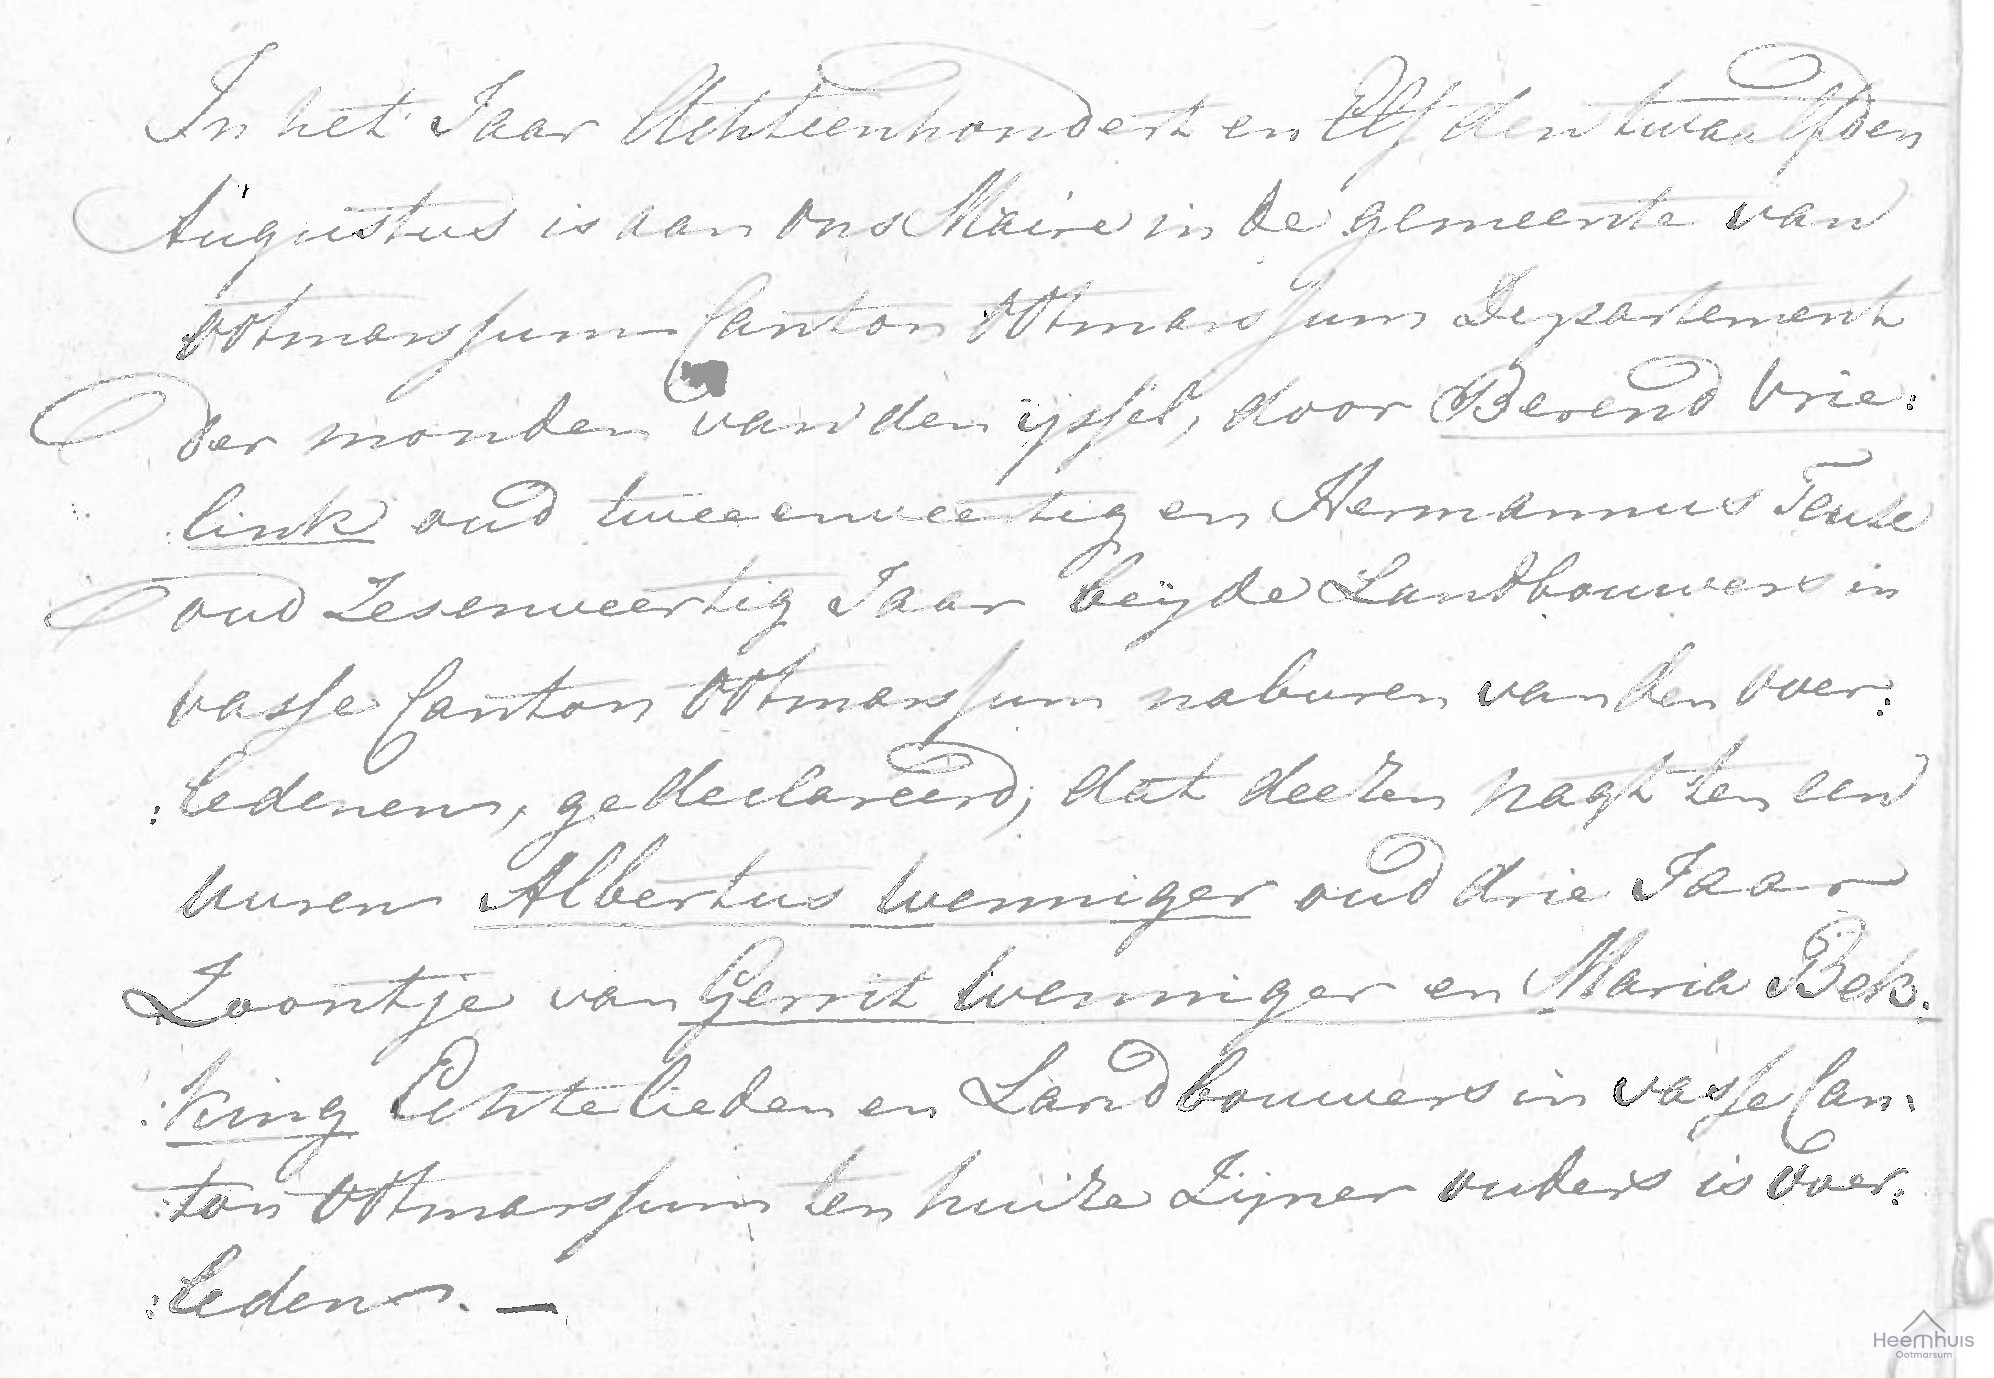 In het Jaar Achtienhondert en Elf den twaalfden
Augustus is aan ons Maire in de gemeente van
Ootmarssum Canton Ootmarssum Departement
der monden van den ijssel, door Berend Vrie:
link oud tweeenveertig en Hermannus
oud Zesenveertig Jaar beÿde Landbouwers in
vasse Canton Ootmarssum naburen van den over:
:ledenen, gedeclareerd, dat deezen nagt ten een
uuren Albertus Wenniger oud drie Jaar
Zoontje van Gerrit Wenniger en Maria Bek:
:king Echtelieden en Landbouwers in vasse Can:
:ton Ootmarssum ten huize Zijner ouders is over:
:leden. —
Heemhuis
Ootmarsum